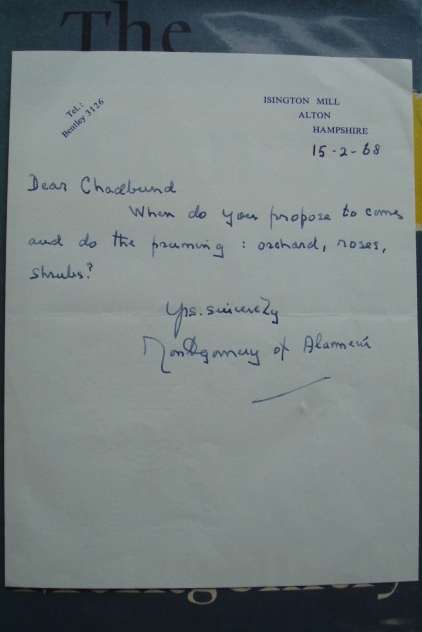 The
Tel.:
Bentley 3126
ISINGTON MILL
ALTON
HAMPSHIRE
15-2-68
Dear Chadbund
When do you propose to come
and do the pruning : orchard, roses,
shrubs?
Yrs. sincerely
Montgomery of Alamein
Montgomery